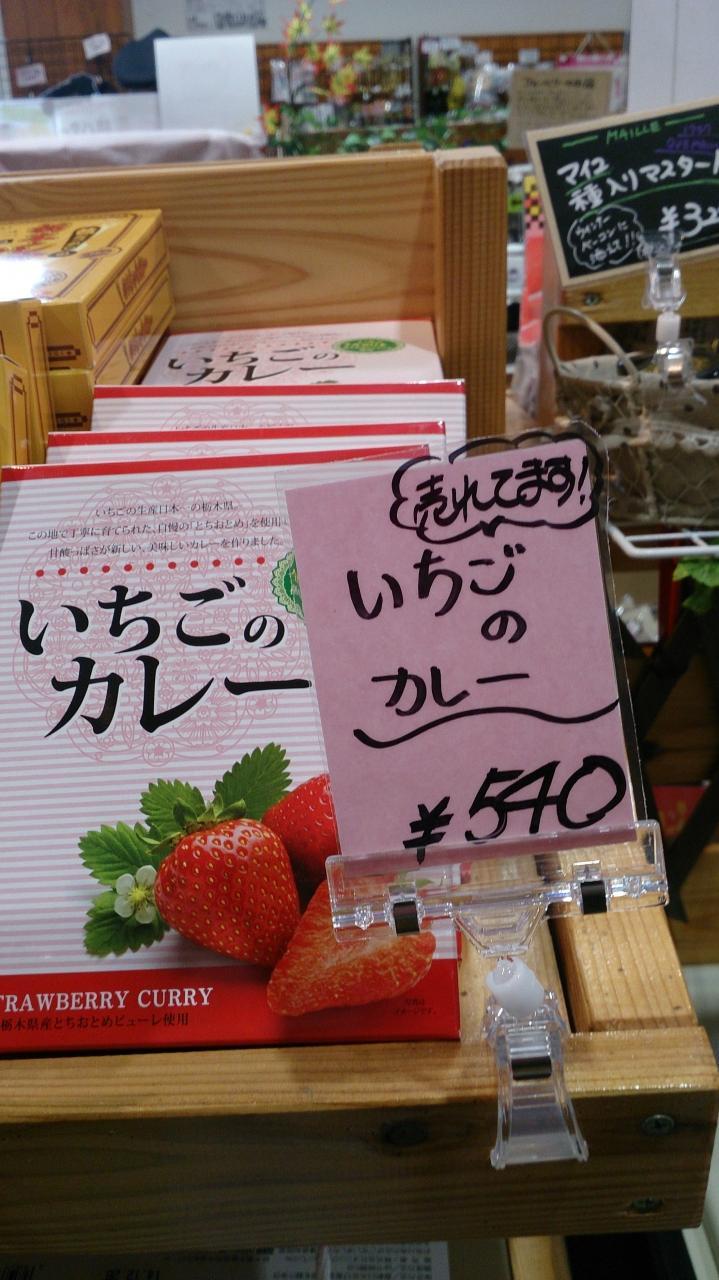 MAILLE
マイユ
種入りマスター
ウインナー
ベーコンに
¥32
いちごの
カレー
いちごの生産日本一の栃木県。
この地で丁寧に育てられた、自慢の「とちおとめ」を使用
甘酸っぱさが新しい、美味しいカレーを作りました。
いちごの
カレー
TRAWBERRY CURRY
栃木県産とちおとめピューレ使用
写真は
イメージです。
売れてます!
いちご
の
カレー
¥540